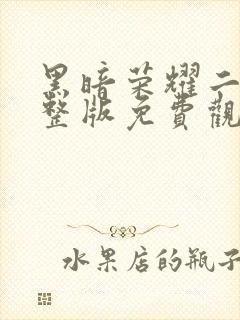 黑暗荣耀二
整版免費觀
水果店的瓶子